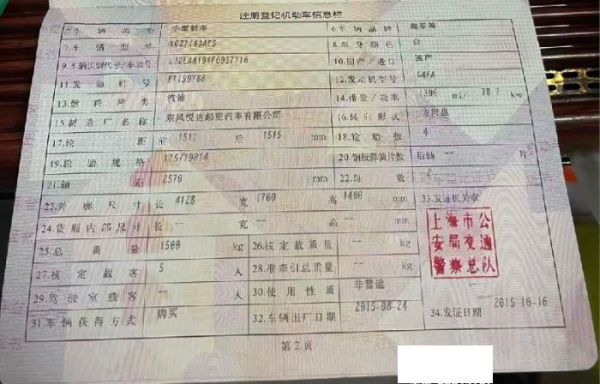 注册登记机动车信息栏
5.车辆类型 小型轿车 6.车辆品牌
7.车辆型号 8.车身颜色 白
9.车辆识别代号/车架号 10.国产/进口 国产
11.发动机号 12.发动机型号 G4FA
13.燃料种类 汽油 14.排量/功率 1396 ml/ 78.7 kw
15.制造厂名称 东风悦达起亚汽车有限公司 16.转向形式 方向盘
17.轮距 前 1511 后 1515 mm 18.轮胎数 4
19.轮胎规格 175/70R14 20.钢板弹簧片数 后轴 --
21.轴距 2570 mm 22.轴数 2
23.外廓尺寸 长 4128 宽 1700 高 1460 mm 33.发证机关章
24.货厢内部尺寸 长 -- 宽 -- 高 -- mm
上海市公
安局交通
警察总队
25.总质量 1500 kg 26.核定载质量 -- kg
27.核定载客 5 人 28.准牵引总质量 -- kg
29.驾驶室载客 -- 人 30.使用性质 非营运
31.车辆获得方式 购买 32.车辆出厂日期 2015-08-24 34.发证日期 2015-10-16
第2页